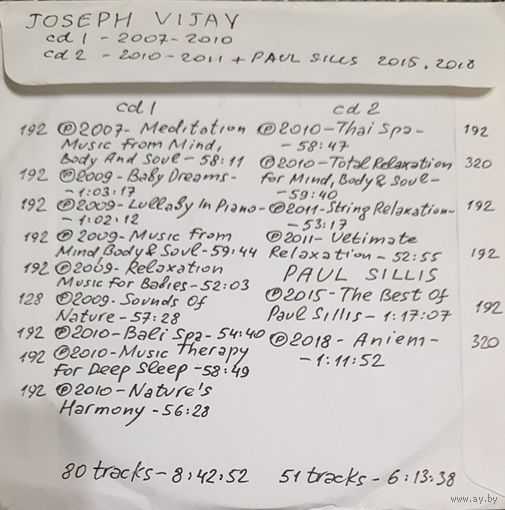 JOSEPH VIJAY
cd 1 - 2007-2010
cd 2 - 2010-2011 + PAUL SILLS 2015, 2018
cd 1
192 ℗2007- Meditation
Music From Mind,
Body And Soul - 58:11
192 ℗2009- Baby Dreams-
-1:03:17
192 ℗2009- Lullaby In Piano-
-1:02:12
192 ℗2009- Music From
Mind Body & Soul-59:44
192 ℗2009- Relaxation
Music For Babies-52:03
128 ℗2009-Sounds Of
Nature-57:28
192 ℗2010-Bali Spa-54:40
192 ℗2010-Music Therapy
For Deep Sleep-58:49
192 ℗2010-Nature's
Harmony-56:28
80 tracks-8:42:52
cd 2
℗2010-Thai Spa- 192
-58:47
℗2010-Total Relaxation 320
For Mind, Body & Soul-
-59:40
℗2011-String Relaxation- 192
-53:17
℗2011-Ultimate
Relaxation-52:55 192
PAUL SILLIS
℗2015-The Best Of
Paul Sillis-1:17:07 192
℗2018-Aniem- 320
-1:11:52
51 tracks-6:13:38
www.ay.by